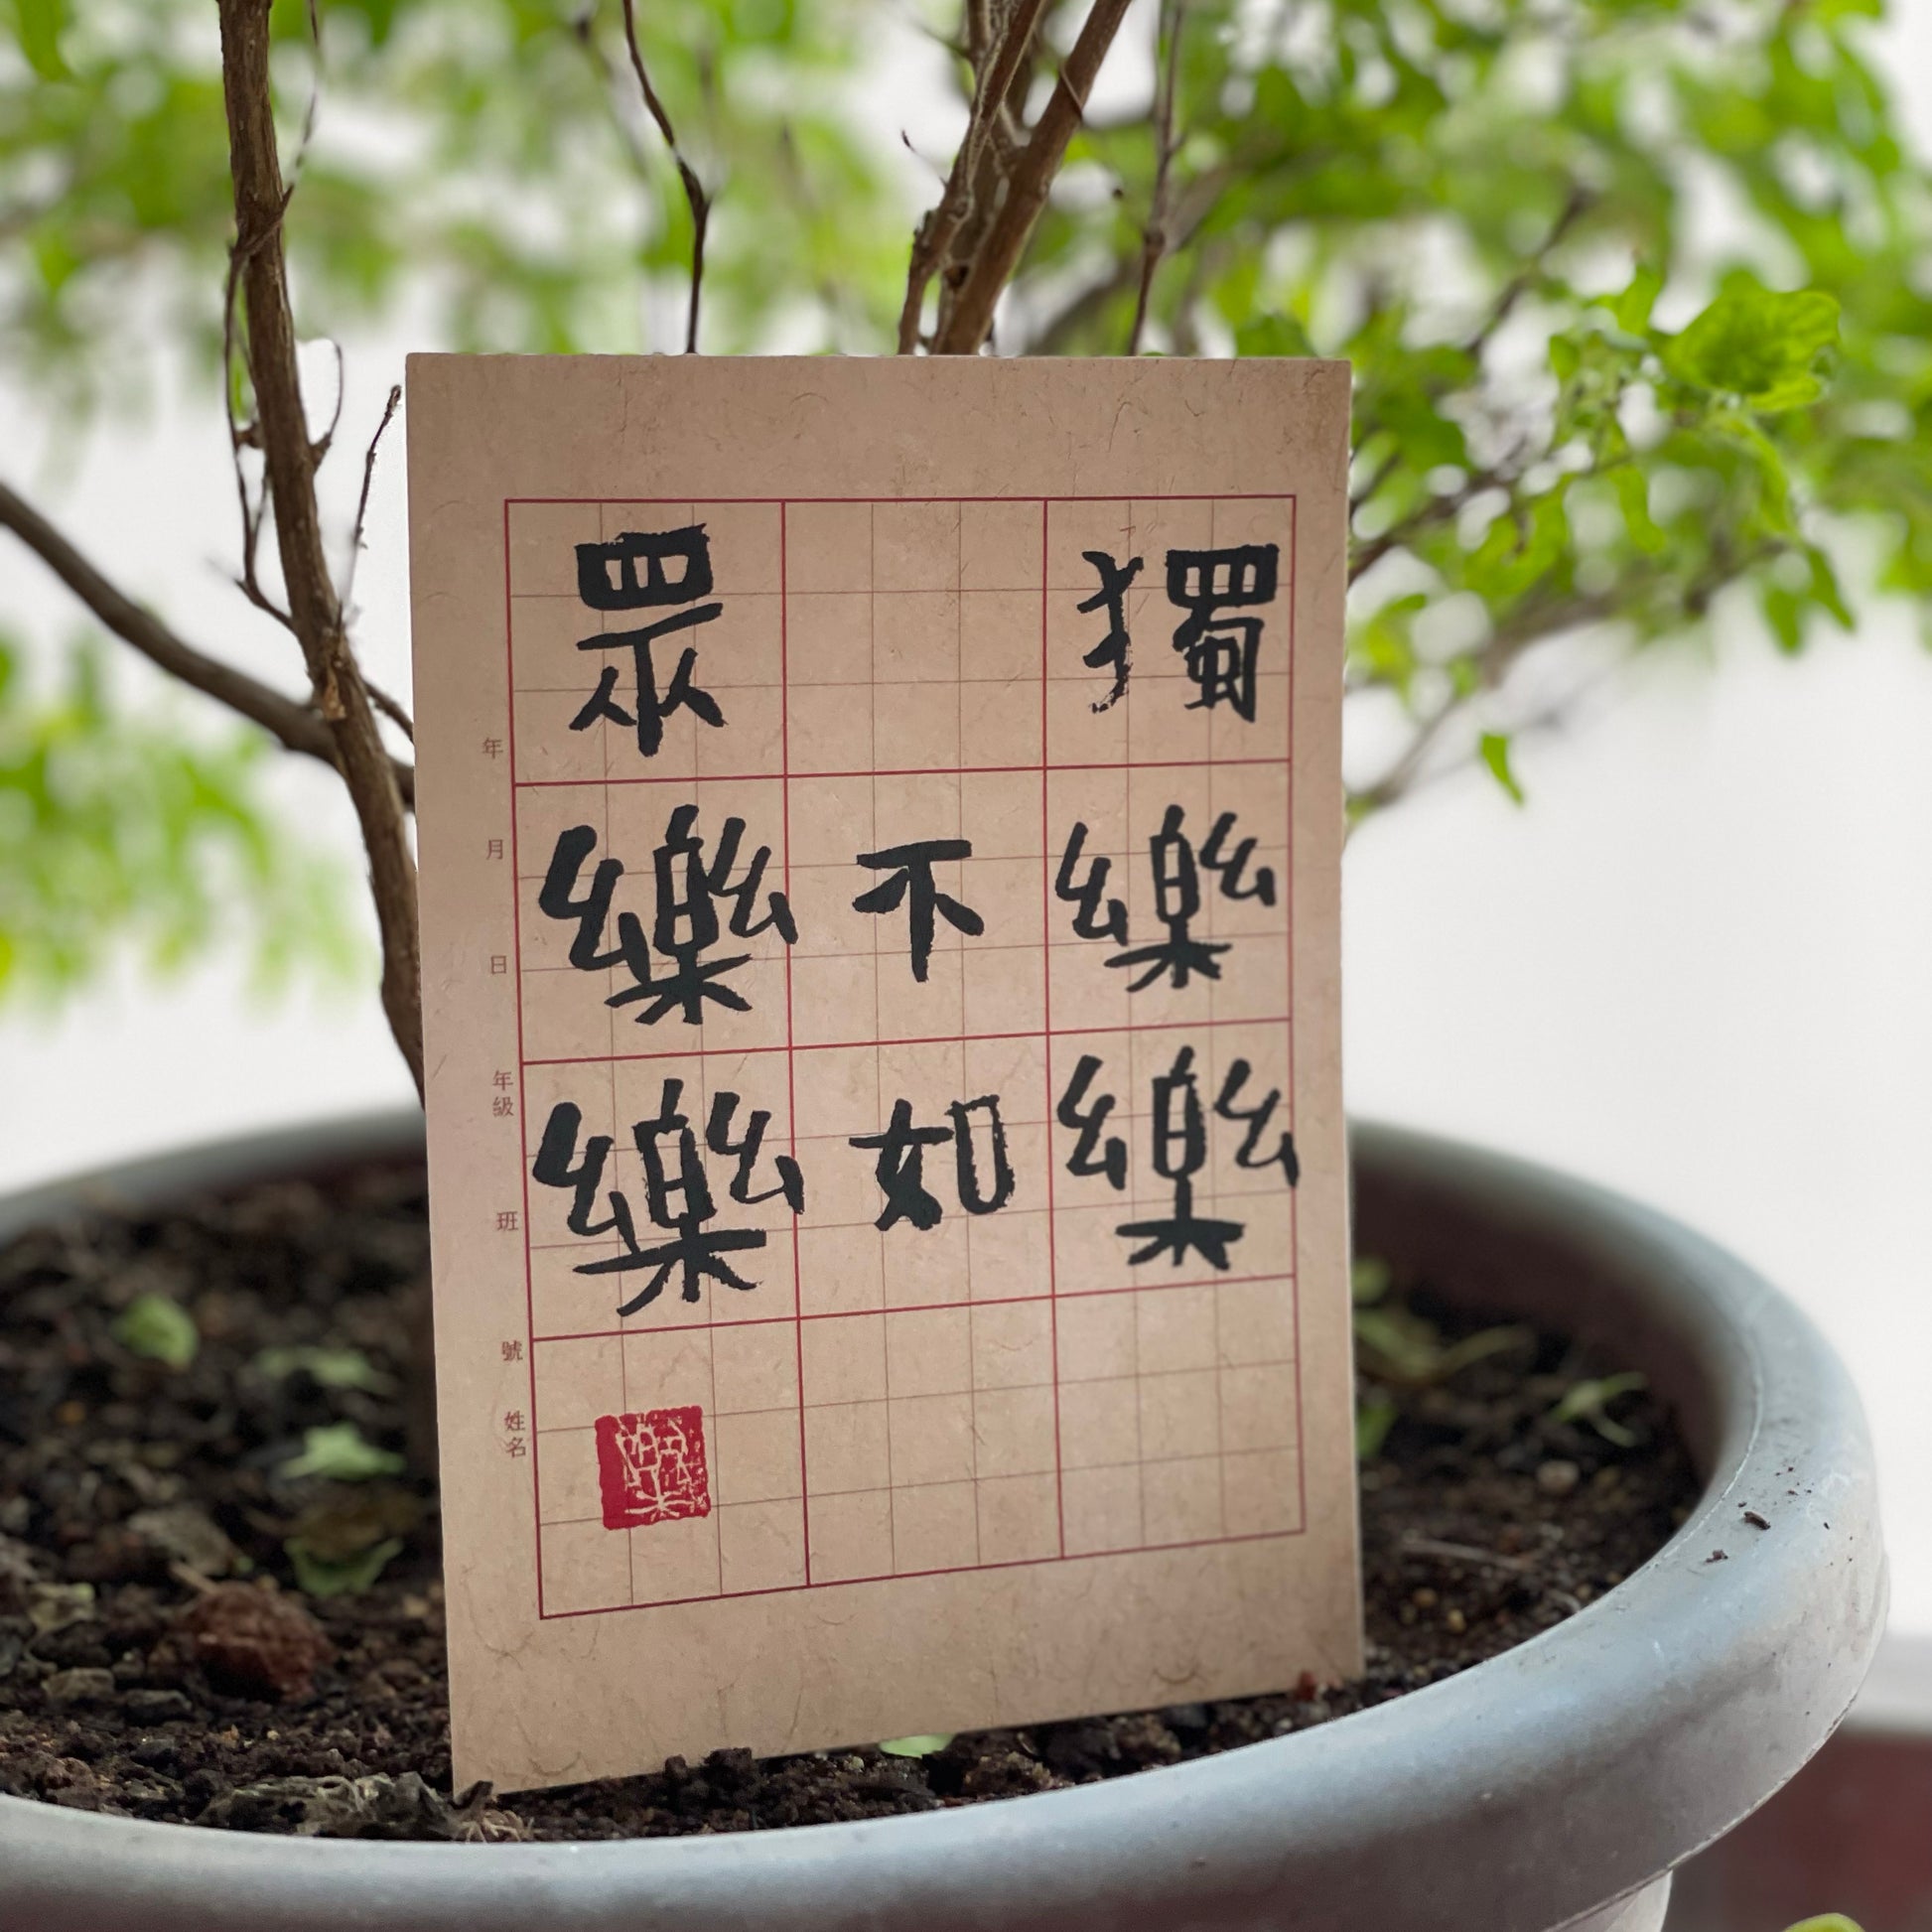 獨樂樂
不如
眾樂樂
年 月 日 年級 班 號 姓名
樂